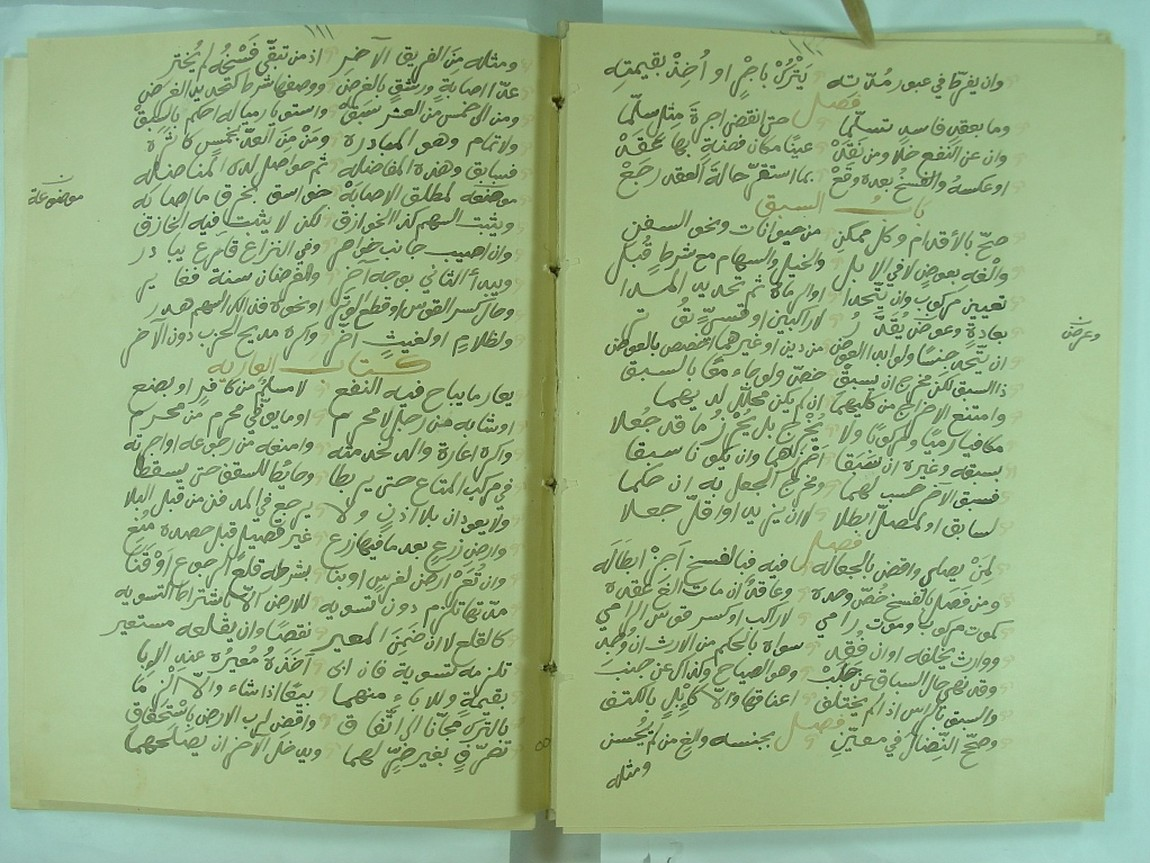 وان يفرطا في عبور مدته يترك باجر او أخذ بقيمته
فصل
وما بعقد فاسد تسلما حتما نقض اجرة مثل سلما
وان عن النفع خلا ومن نقد عينا مكان فضة بها عقد
او عكسه والفسخ بعده وقع بما استقر حالة العقد رجع
باب السبق
صح بالأقدام وكل ممكن من حيوانات ونحو السفن
والغه بعوض لا في الابل والخيل والسهام مع شرط قبل
تعيين مركوب وان يتحدا او الرماة ثم تحديد المدا
بعادة وعوض يقدر لا راكبين او قسي
وعوض
ان يتحد جنسا ولو ابدا العوض من دين او غيرهما
ذا السبق لكن مخرج ان يسبق خص ولو جاء معا بالسبق
وامتنع الاخراج من كليهما ان لم يكن محلل لديهما
مكافيا رميا ومركوبا ولا يخرج بل يحرز ما قد جعلا
بسبقه وغيره ان سبقا احرز لهما وان يكونا سبقا
فسبق الآخر حسب لهما ومخرج الجعل به ان حكما
لسابق او لمصل ابطلا لا ان يزيد او اقل جعلا
فصل
لمن يصلي واقض بالجعاله فيه فبالفسخ اجز ابطاله
ومن فضل بالفسخ خص وحده وعاقد ان مات الغ عقده
كموت مركوب وموت رامي لا راكب او كسر قوس الرامي
ووارث يخلفه او ان فقد سواه بالحكم من الارث ان وجد
وقد نهي حال السباق عن جلب وهو الصياح وكذاك عن جنب
والسبق بالراس اذا لم يختلف اعناقها والا كابل بالكتف
فصل
وصح النضال في معين بجنسه والغ من لم يحسن
ومثله
ومثله من الفريق الآخر اذ من تبقى فسخه لم يختر
عدا اصابة ورشق بالغرض ووصفها شرط كتحديد الغرض
ومن الى خمس من العشر سبق واستويا رمياله احكم بالسبق
ولا تمام وهو المبادره ومن من العد بخمس كاثره
فسابق وهذه المفاضله ثم حواصل لدى المناضله
موضوعة
موضوعة لمطلق الاصابه خواسق بخرق ما اصابه
ويثبت السهم كذا الخوازق لكن لا يثبت فيه الخازق
وان اصيب جانب خواصر وفي النزاع قارع يبادر
ويبدأ الثاني بوجه آخر والغرضان سنة
وحال كسر القوس او قطع الوتر او نحوه فذلك السهم هدر
ولظلام او لغيث اخر واكره مديح الحزب دون الآخر
كتاب العاريه
يعار ما يباح فيه النفع لا مسلم من كافر او بضع
او شابه من رجل لا محرم او ما يؤل في محرم من محرم
واكره اعارة والد لخدمته وامنعه من رجوعه او اجرته
في مركب المتاع حتى يربطا وحائط للسقف حتى يسقطا
ولا يعودان بلا اذن ولا يرجع في المدفن من قبل البلا
وارض زرع بعد ما فيها زرع غير فصيل قبل حصده منع
وان تعر ارض لغرس او بنا بشرطه قلعا لرجوع او فنا
مدتها تلزم دون تسويه للارض الا باشتراط التسويه
كالقلع لا ان ضمن المعير نقصا وان يقلعه مستعير
تلزمه تسوية فان ابى اخذه معيره عند الابا
بقيمة وللاباء منهما بيعا اذا شاءا والا الزما
بالترك مجانا الى اتفاق واقض لرب الارض باستحقاق
تصرف بغير ضر لهما ويدخل الآخر ان يصلحهما